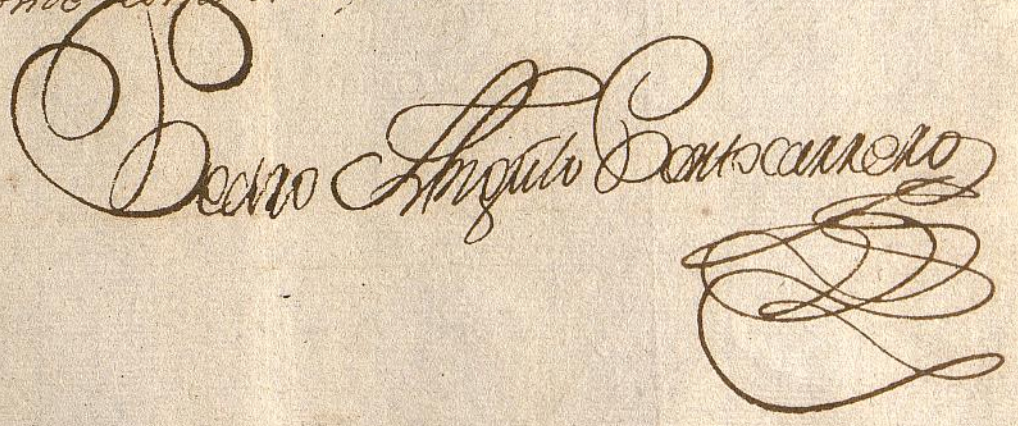 Pedro Angulo Portocarrero